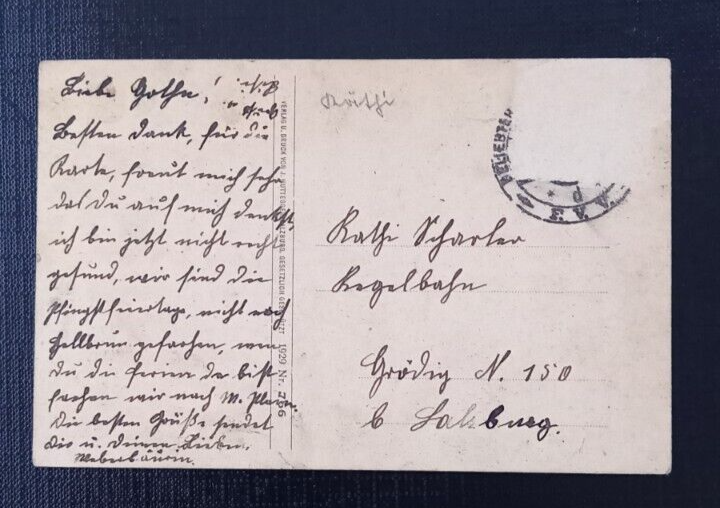 Liebe Gothe!
Besten Dank, für die
Karte, freut mich sehr
das Du auf mich denkst,
ich bin jetzt nicht recht
gesund, wir sind die
Pfingstfeiertage, nicht nach
Hellbrun gefahren, wen
Du die Ferien da bist
fahren wir nach M. Plain.
Die besten Grüße sendet
Dir u. Deinen Lieben,
VERLAG U. DRUCK VON J. HUTTEGGER, SALZBURG. GESETZLICH GESCHÜTZT 1929 Nr. 766
Käthi
Kathi Scharler
Kegelbahn
Grödig N. 150
b Salzburg.